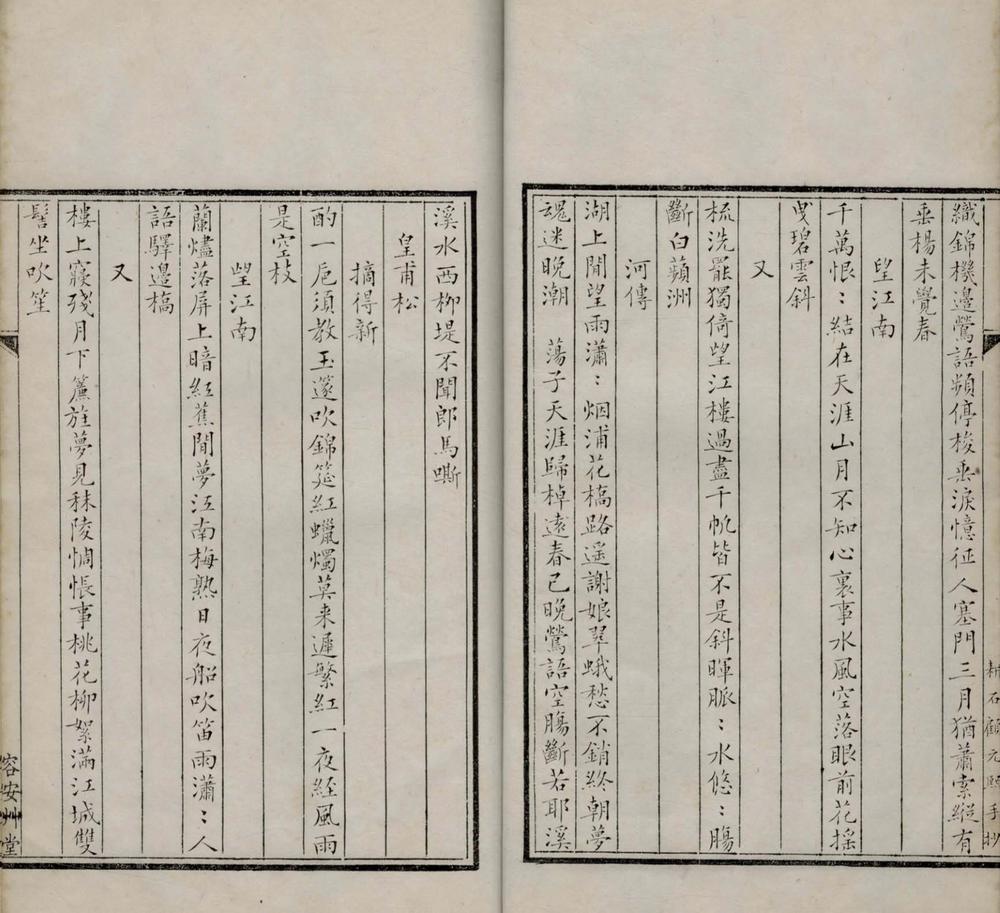 織錦機邊鶯語頻停梭垂淚憶征人塞門三月猶蕭索縱有
垂楊未覺春
望江南
千萬恨〻結在天涯山月不知心裏事水風空落眼前花揺
曵碧雲斜
又
梳洗罷獨倚望江樓過盡千帆皆不是斜暉脈〻水悠〻腸
斷白蘋洲
河傳
湖上閒望雨瀟〻烟浦花橋路遥謝娘翠蛾愁不銷終朝夢
魂迷晚潮　蕩子天涯歸棹遠春已晚鶯語空腸斷若耶溪
溪水西柳堤不聞郎馬嘶
皇甫松
摘得新
酌一巵須教玉篴吹錦筵紅蠟燭莫来遲繁紅一夜経風雨
是空枝
望江南
蘭燼落屏上暗紅蕉閒夢江南梅熟日夜船吹笛雨瀟〻人
語驛邉橋
又
樓上寢殘月下簾旌夢見秣陵惆悵事桃花柳絮滿江城雙
髻坐吹笙
容安艸堂
析石顧元熙手抄